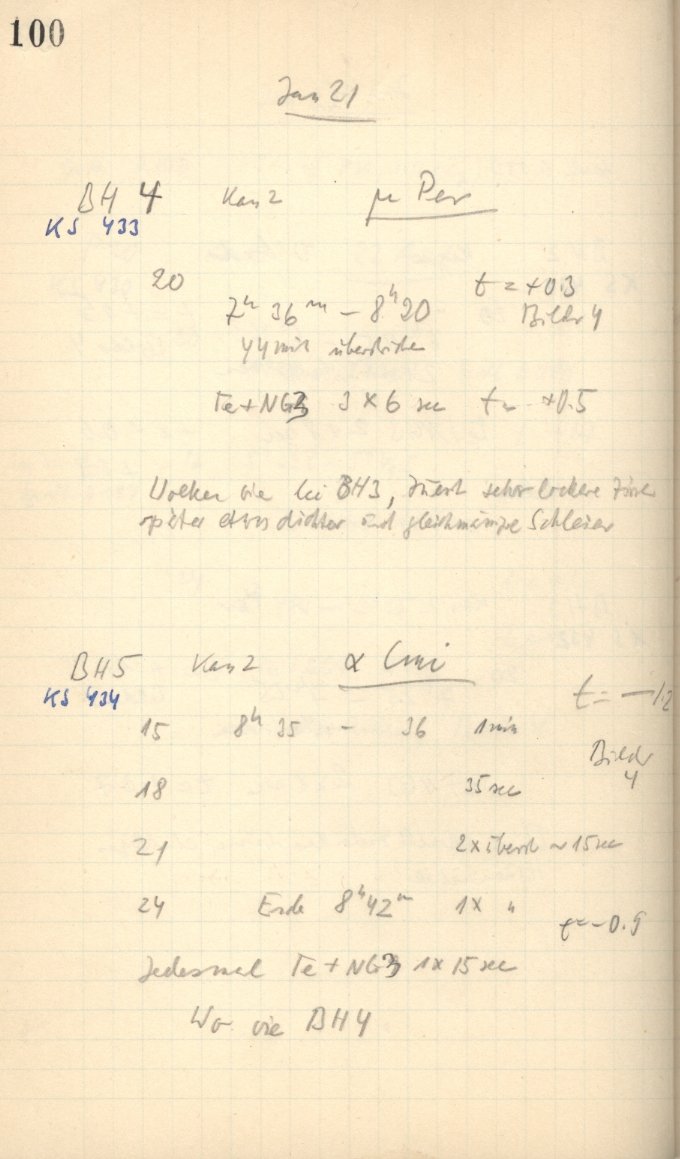 100
Jan 21
BH 4 Kam 2 μ Per
KS 433
20 t = +0.3
7h 36m – 8h 20 Bilder 4
44 min überstrichen
Fe+NG3 3 x 6 sec t = +0.5
Wolken wie bei BH3, zuerst sehr lockere
später etwas dichter und gleichmässige Schleier
BH5 Kam 2 α Cmi
KS 434
t = –1.2
15 8h 35 – 36 1 min
Bilder 4
18 35 sec
21 2 x überst ~ 15 sec
24 Ende 8h 42m 1 x "
t = –0.9
Jedesmal Fe + NG3 1 x 15 sec
Wo wie BH4